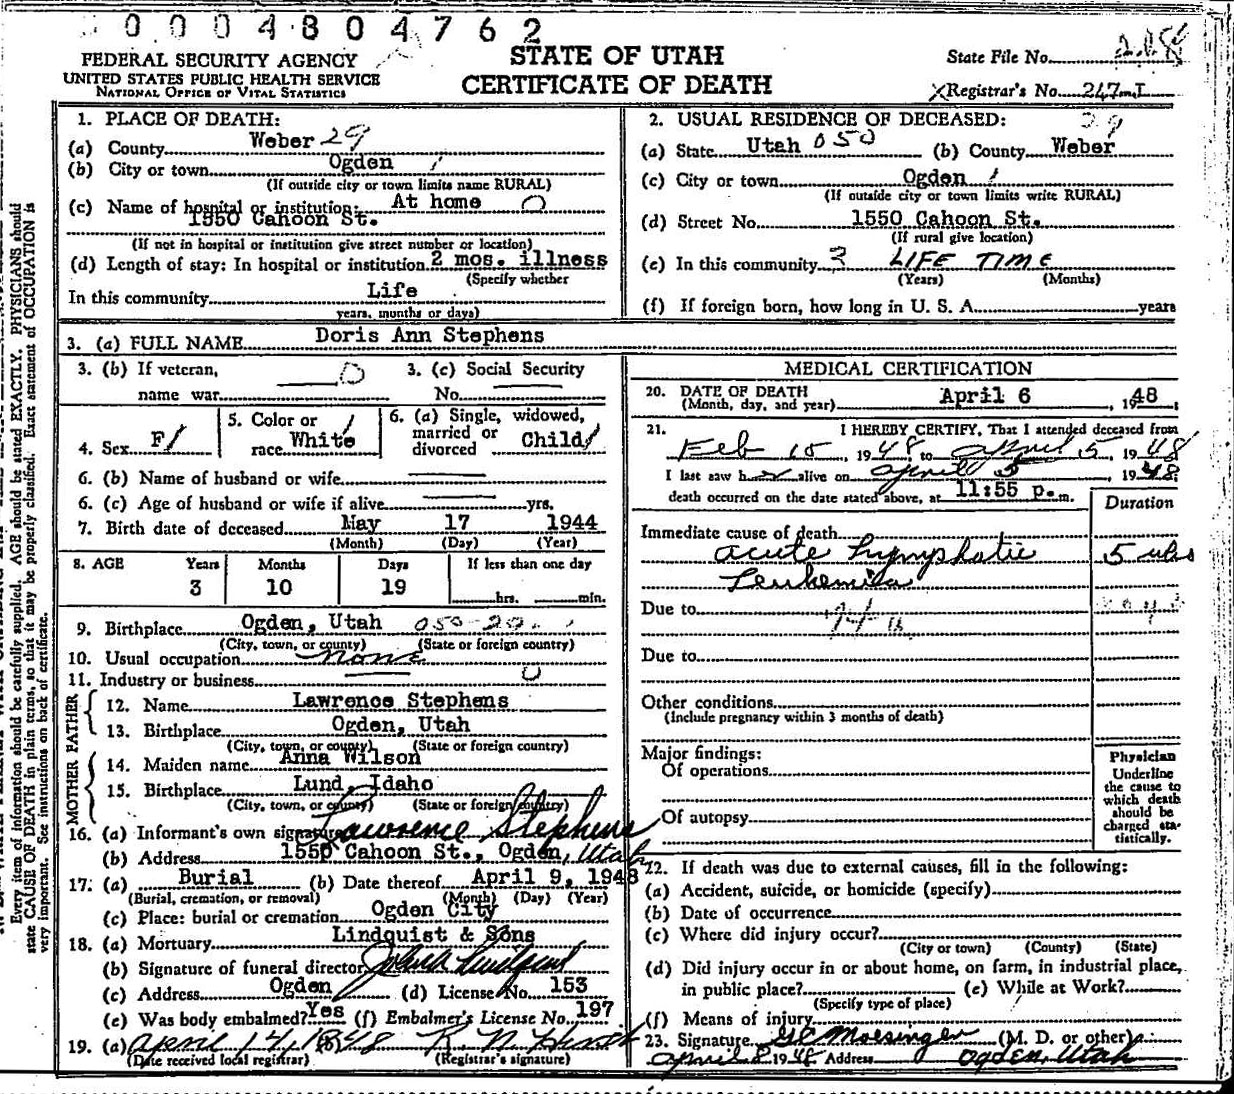 0004804762
FEDERAL SECURITY AGENCY
UNITED STATES PUBLIC HEALTH SERVICE
NATIONAL OFFICE OF VITAL STATISTICS
STATE OF UTAH
CERTIFICATE OF DEATH
State File No.
Registrar's No. 247
1. PLACE OF DEATH:
(a) County Weber 29
(b) City or town Ogden
(If outside city or town limits name RURAL)
(c) Name of hospital or institution: At home
1550 Cahoon St.
(If not in hospital or institution give street number or location)
(d) Length of stay: In hospital or institution 2 mos. illness
(Specify whether
In this community Life
years, months or days)
2. USUAL RESIDENCE OF DECEASED: 29
(a) State Utah 050 (b) County Weber
(c) City or town Ogden
(If outside city or town limits write RURAL)
(d) Street No. 1550 Cahoon St.
(If rural give location)
(e) In this community 3 LIFE TIME
(Years) (Months)
(f) If foreign born, how long in U. S. A. years
3. (a) FULL NAME Doris Ann Stephens
3. (b) If veteran, 0 3. (c) Social Security
name war No.
4. Sex F 5. Color or race White 6. (a) Single, widowed, married or divorced Child
6. (b) Name of husband or wife
6. (c) Age of husband or wife if alive yrs.
7. Birth date of deceased May 17 1944
(Month) (Day) (Year)
8. AGE Years Months Days If less than one day
3 10 19 hrs. min.
9. Birthplace Ogden, Utah
(City, town, or county) (State or foreign country)
10. Usual occupation None
11. Industry or business
FATHER
12. Name Lawrence Stephens
13. Birthplace Ogden, Utah
(City, town, or county) (State or foreign country)
MOTHER
14. Maiden name Anna Wilson
15. Birthplace Lund, Idaho
(City, town, or county) (State or foreign country)
16. (a) Informant's own signature Lawrence Stephens
(b) Address 1550 Cahoon St., Ogden, Utah
17. (a) Burial (b) Date thereof April 9, 1948
(Burial, cremation, or removal) (Month) (Day) (Year)
(c) Place: burial or cremation Ogden City
18. (a) Mortuary Lindquist & Sons
(b) Signature of funeral director
(c) Address Ogden (d) License No. 153
(e) Was body embalmed? Yes (f) Embalmer's License No. 197
19. (a) April 14, 1948 (b)
(Date received local registrar) (Registrar's signature)
MEDICAL CERTIFICATION
20. DATE OF DEATH
(Month, day, and year) April 6, 1948
21. I HEREBY CERTIFY, That I attended deceased from
Feb 15, 1948 to April 5, 1948
I last saw her alive on April 5 1948
death occurred on the date stated above, at 11:55 p.m.
Duration
Immediate cause of death
acute Lymphatic
Leukemia
Due to
Due to
Other conditions
(Include pregnancy within 3 months of death)
Major findings:
Of operations
Of autopsy
Physician
Underline
the cause to
which death
should be
charged sta-
tistically.
22. If death was due to external causes, fill in the following:
(a) Accident, suicide, or homicide (specify)
(b) Date of occurrence
(c) Where did injury occur?
(City or town) (County) (State)
(d) Did injury occur in or about home, on farm, in industrial place,
in public place? (e) While at Work?
(Specify type of place)
(f) Means of injury
23. Signature Moesinger (M. D. or other)
April 8 1948 Address Ogden, Utah
Every item of information should be carefully supplied. AGE should be stated EXACTLY. PHYSICIANS should
state CAUSE OF DEATH in plain terms, so that it may be properly classified. Exact statement of OCCUPATION is
very important. See instructions on back of certificate.